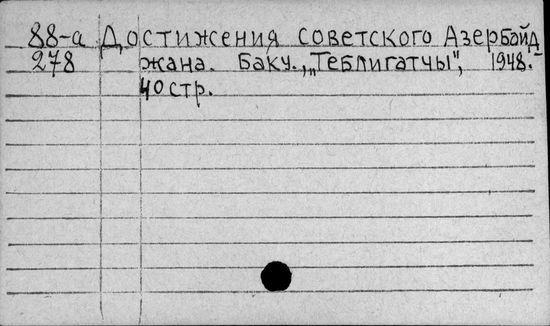 88-а Достижения советского Азербайд-
278 жана. Баку., „Теблигатчы", 1948.
40 стр.